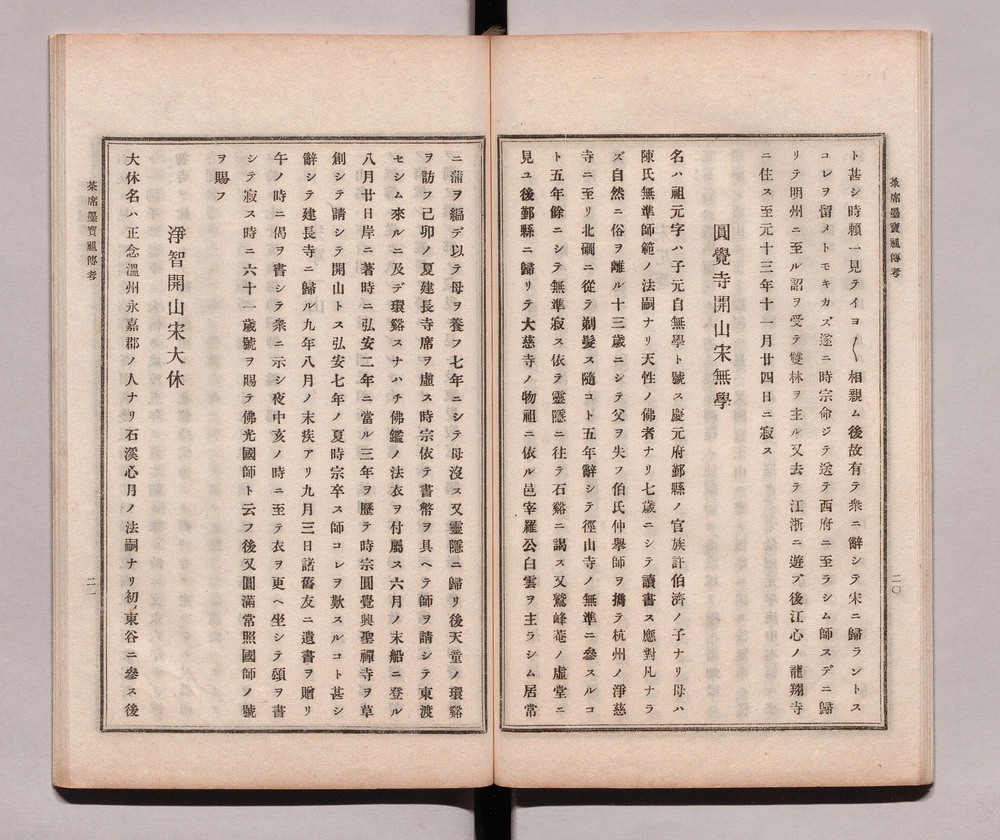 茶席墨寳祖傳考
二〇
ト甚シ時頼一見テイヨ〱相親ム後故有テ衆ニ辭シテ宋ニ歸ラントス
コレヲ留メトモキカズ遂ニ時宗命ジテ送テ西府ニ至ラシム師スデニ歸
リテ明州ニ至ル詔ヲ受テ雙林ヲ主ル又去テ江浙ニ遊ブ後江心ノ龍翔寺
ニ住ス至元十三年十一月廿四日ニ寂ス
圓覺寺開山宋無學
名ハ祖元字ハ子元自無學ト號ス慶元府鄞縣ノ官族許伯濟ノ子ナリ母ハ
陳氏無準師範ノ法嗣ナリ天性ノ佛者ナリ七歳ニシテ讀書ス應對凡ナラ
ズ自然ニ俗ヲ離ル十三歳ニシテ父ヲ失フ伯氏仲擧師ヲ携テ杭州ノ淨慈
寺ニ至リ北磵ニ從テ剃髮ス隨コト五年辭シテ徑山寺ノ無準ニ參スルコ
ト五年餘ニシテ無準寂ス依テ靈隱ニ往テ石谿ニ謁ス又鷲峰菴ノ虛堂ニ
見ユ後鄞縣ニ歸リテ大慈寺ノ物祖ニ依ル邑宰羅公白雲ヲ主ラシム居常
ニ蒲ヲ編デ以テ母ヲ養フ七年ニシテ母沒ス又靈隱ニ歸リ後天童ノ環谿
ヲ訪フ己卯ノ夏建長寺席ヲ虛ス時宗依テ書幣ヲ具ヘテ師ヲ請シテ東渡
セシム來ルニ及デ環谿スナハチ佛鑑ノ法衣ヲ付屬ス六月ノ末船ニ登ル
八月廿日岸ニ著時ニ弘安二年ニ當ル三年ヲ歷テ時宗圓覺興聖禪寺ヲ草
創シテ請シテ開山トス弘安七年ノ夏時宗卒ス師コレヲ歎スルコト甚シ
辭シテ建長寺ニ歸ル九年八月ノ末疾アリ九月三日諸舊友ニ遺書ヲ贈リ
午ノ時ニ偈ヲ書シテ衆ニ示シ夜中亥ノ時ニ至テ衣ヲ更ヘ坐シテ頌ヲ書
シテ寂ス時ニ六十一歳號ヲ賜テ佛光國師ト云フ後又圓滿常照國師ノ號
ヲ賜フ
淨智開山宋大休
大休名ハ正念溫州永嘉郡ノ人ナリ石溪心月ノ法嗣ナリ初東谷ニ參ス後
茶席墨寳祖傳考
二一